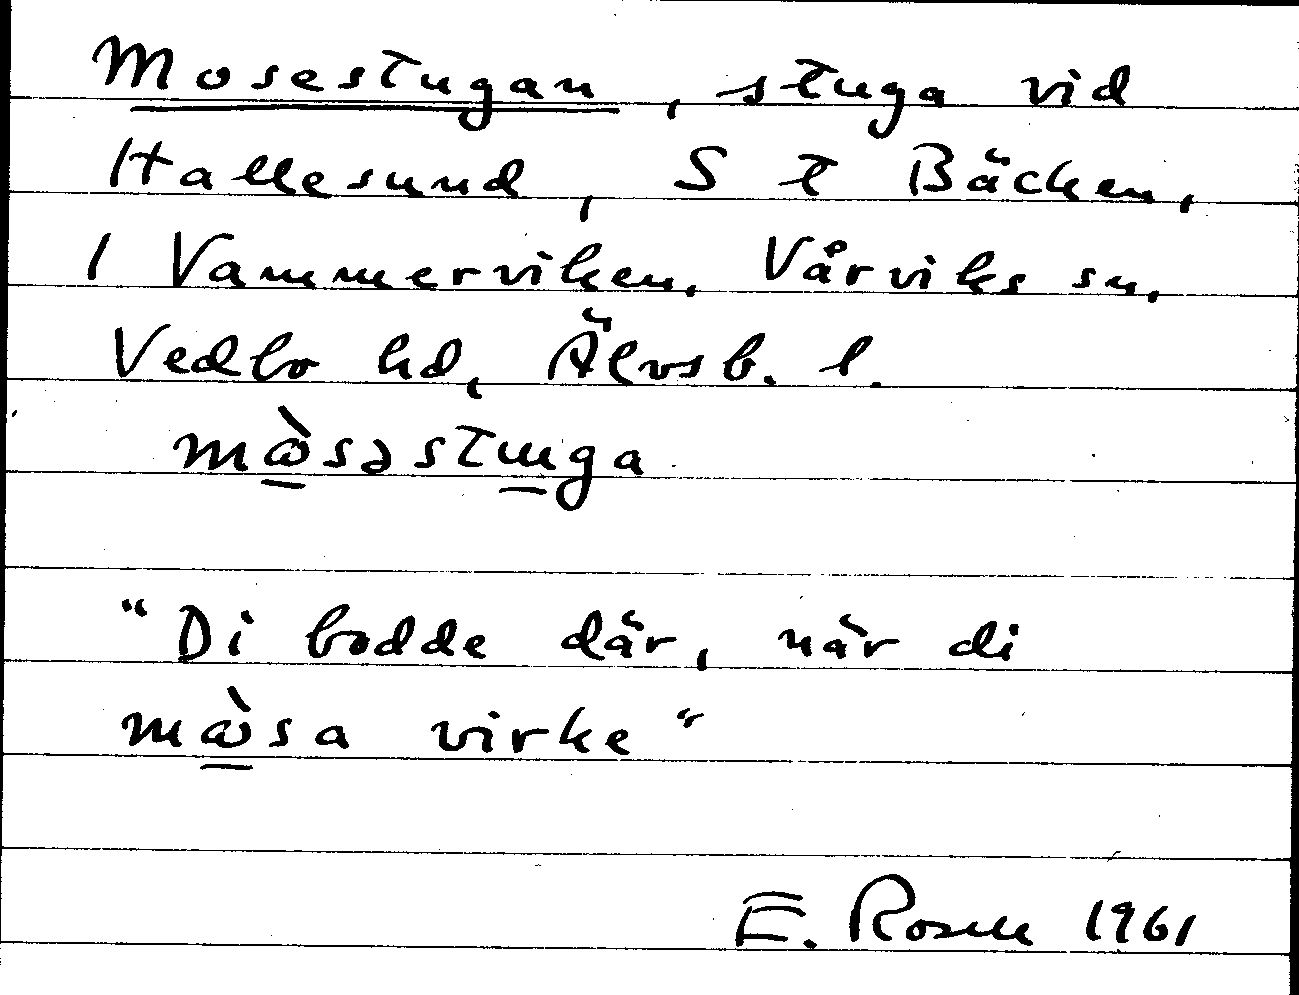 Mosestugan, stuga vid
Hallesund, S t Bäcken,
I Vammerviken, Vårviks sn,
Vedbo hd, Älvsb. l.
mɷ̀səstuga
"Di bodde där, när di
mɷ̀sa virke"
E. Rosell 1961